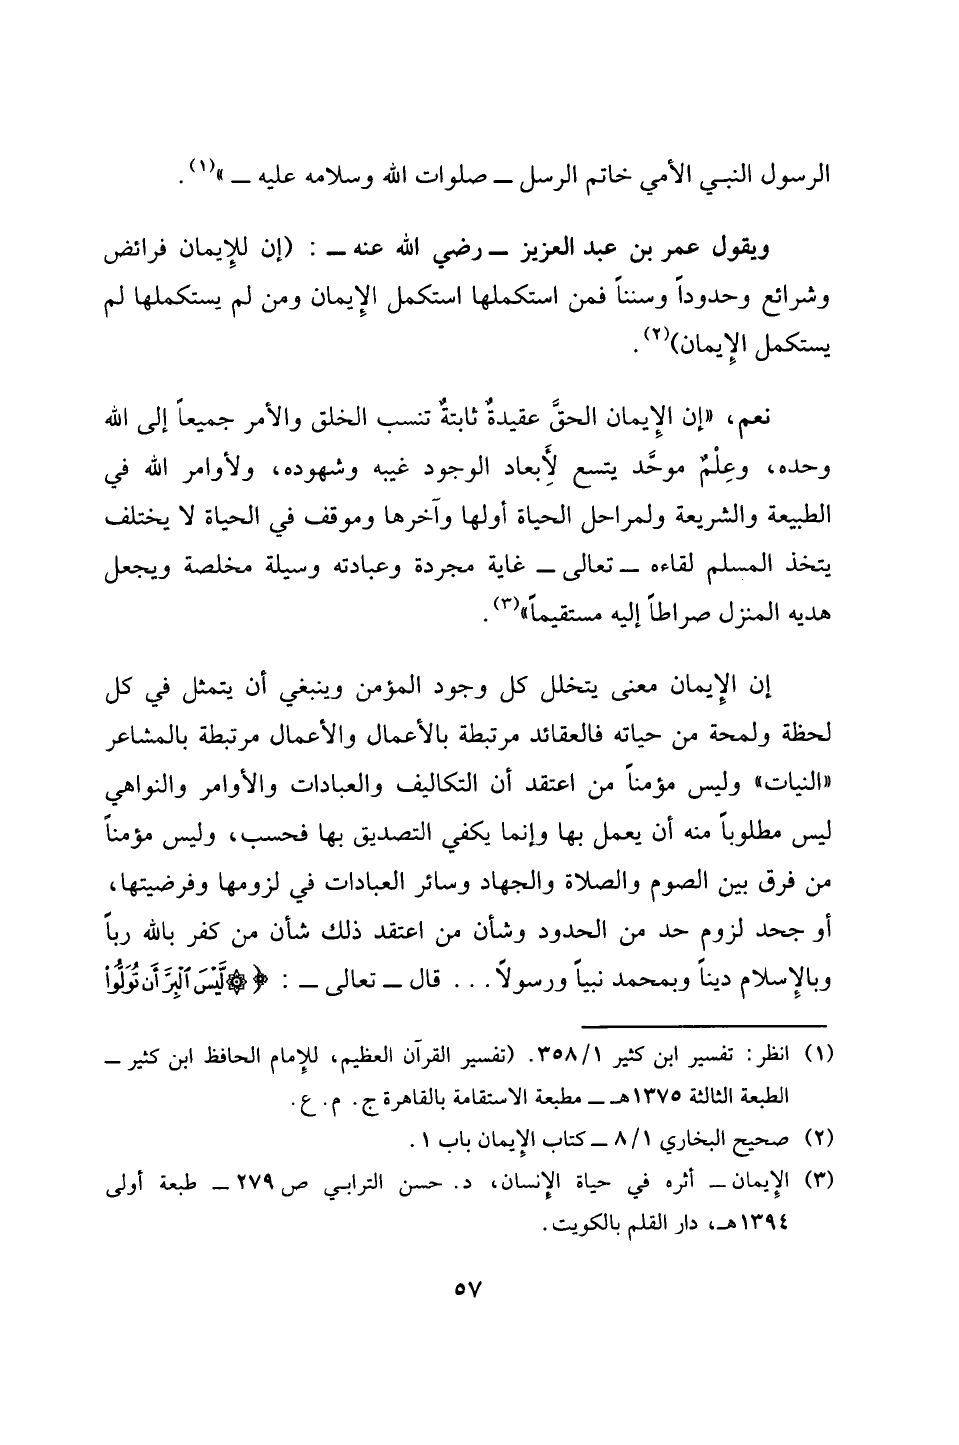 الرسول النبي الأمي خاتم الرسل ــ صلوات الله وسلامه عليه ــ »(١) .
ويقول عمر بن عبد العزيز ــ رضي الله عنه ــ : (إن للإيمان فرائض
وشرائع وحدوداً وسنناً فمن استكملها استكمل الإيمان ومن لم يستكملها لم
يستكمل الإيمان)(٢) .
نعم، «إن الإيمان الحقَّ عقيدةٌ ثابتةٌ تنسب الخلق والأمر جميعاً إلى الله
وحده، وعِلْمٌ موحَّد يتسع لأَبعاد الوجود غيبه وشهوده، ولأوامر الله في
الطبيعة والشريعة ولمراحل الحياة أولها وآخرها وموقف في الحياة لا يختلف
يتخذ المسلم لقاءه ــ تعالى ــ غاية مجردة وعبادته وسيلة مخلصة ويجعل
هديه المنزل صراطاً إليه مستقيماً»(٣) .
إن الإيمان معنى يتخلل كل وجود المؤمن وينبغي أن يتمثل في كل
لحظة ولمحة من حياته فالعقائد مرتبطة بالأعمال والأعمال مرتبطة بالمشاعر
«النيات» وليس مؤمناً من اعتقد أن التكاليف والعبادات والأوامر والنواهي
ليس مطلوباً منه أن يعمل بها وإنما يكفي التصديق بها فحسب، وليس مؤمناً
من فرق بين الصوم والصلاة والجهاد وسائر العبادات في لزومها وفرضيتها،
أو جحد لزوم حد من الحدود وشأن من اعتقد ذلك شأن من كفر بالله رباً
وبالإسلام ديناً وبمحمد نبياً ورسولاً . . . قال ــ تعالى ــ : ﴿ ۞ لَّيْسَ ٱلْبِرَّ أَن تُوَلُّوا۟
(١) انظر: تفسير ابن كثير ٣٥٨/١. (تفسير القرآن العظيم، للإمام الحافظ ابن كثير ــ
الطبعة الثالثة ١٣٧٥هـ ــ مطبعة الاستقامة بالقاهرة ج. م. ع.
(٢) صحيح البخاري ٨/١ ــ كتاب الإيمان باب ١ .
(٣) الإيمان ــ أثره في حياة الإنسان، د. حسن الترابي ص ٢٧٩ ــ طبعة أولى
١٣٩٤هـ، دار القلم بالكويت .
٥٧